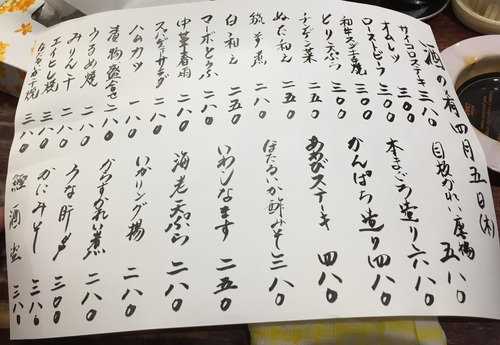 酒の肴 四月五日(木)
サイコロステーキ 三八〇
オムレツ 三〇〇
ローストビーフ 三〇〇
和牛スジ玉焼 三〇〇
とり天ぷら 二五〇
チンゲン菜 二五〇
ぬた和え 二五〇
筑前煮 二五〇
白和え 二五〇
マーボとうふ 二八〇
中華春雨 二八〇
スパゲティーサラダ 二八〇
ハムカツ 一八〇
漬物盛合せ 二八〇
うるめ焼 二八〇
みりん干 二八〇
エイヒレ焼 三八〇
三八〇
目板がれい唐揚 五八〇
本まぐろ造り 六八〇
かんぱち造り 四八〇
あわびステーキ 四八〇
ほたるいか酢みそ 三八〇
いわしなます 二五〇
海老天ぷら 二八〇
いかリング揚 二八〇
からすがれい煮 二八〇
うな肝 三〇〇
かにみそ 三八〇
鰹酒盗 三八〇